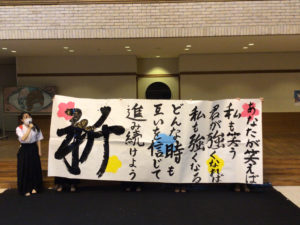 あなたが笑えば
私も笑う
君が強くなれば
私も強くなる
どんな時も
互いを信じて
進み続けよう
祈